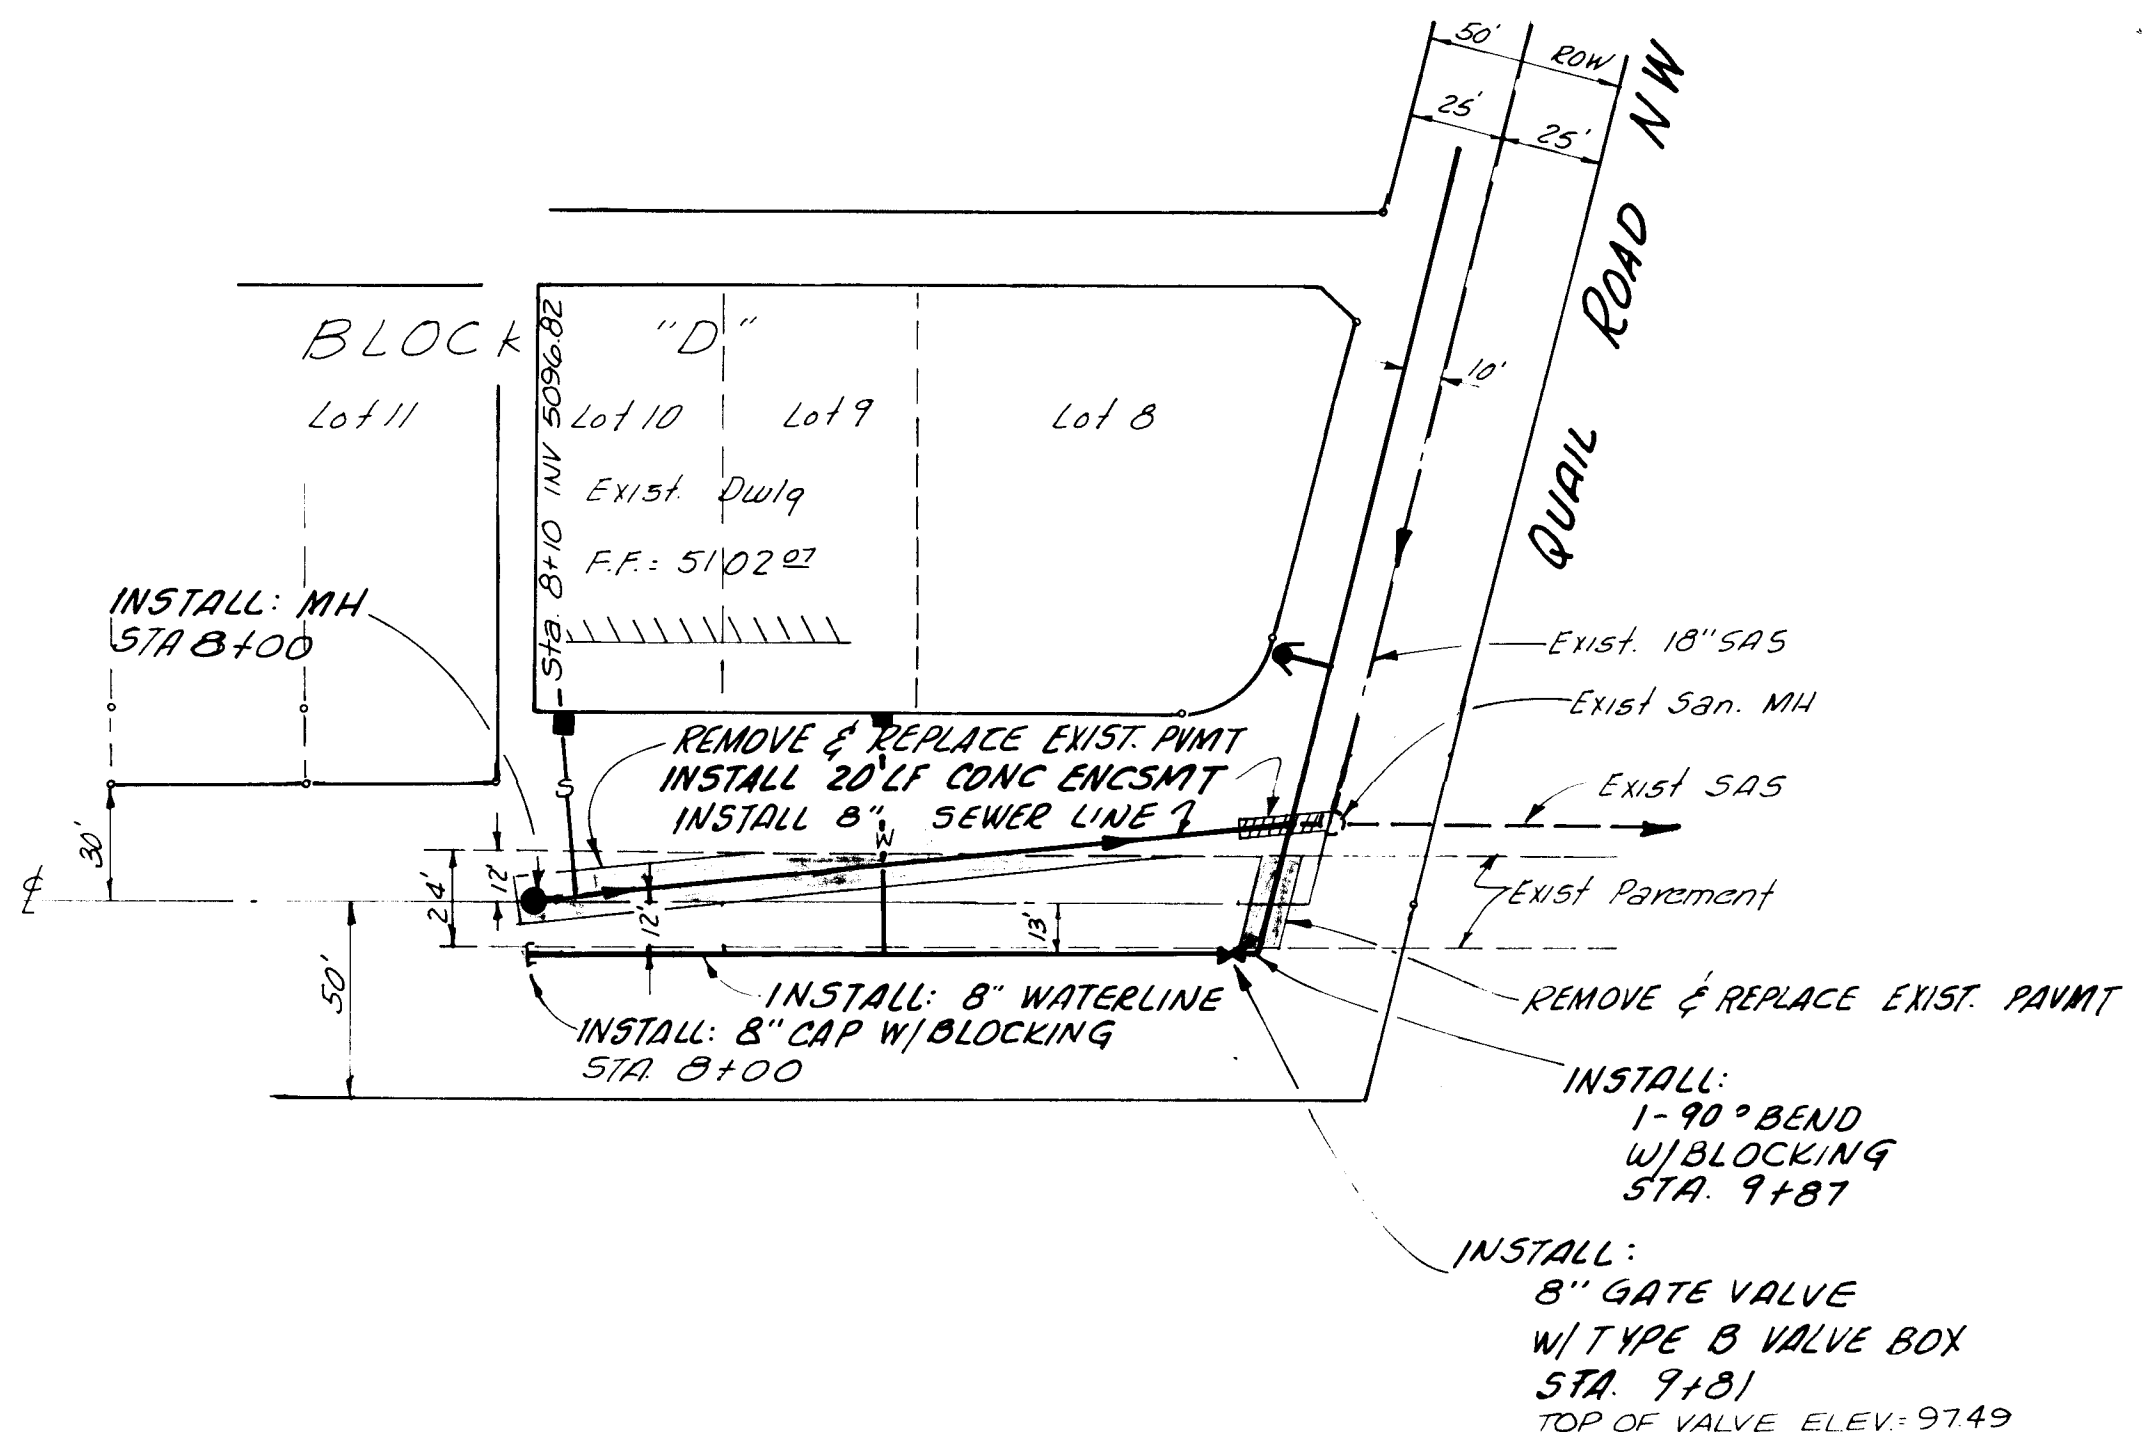 50' ROW
25' 25'
QUAIL ROAD NW
10'
BLOCK "D"
Lot 11
Lot 10
Lot 9
Lot 8
Sta. 8+10 INV 5096.82
Exist. Dwlg
F.F. = 5102 07
INSTALL: MH
STA 8+00
Exist. 18" SAS
Exist San. MH
Exist SAS
Exist Pavement
REMOVE & REPLACE EXIST. PVMT
INSTALL 20' LF CONC ENCSMT
INSTALL 8" SEWER LINE
S
W
30'
24'
12'
12'
13'
50'
℄
INSTALL: 8" WATERLINE
INSTALL: 8" CAP W/BLOCKING
STA. 8+00
REMOVE & REPLACE EXIST. PAVMT
INSTALL:
1-90° BEND
W/BLOCKING
STA. 9+87
INSTALL:
8" GATE VALVE
W/ TYPE B VALVE BOX
STA. 9+81
TOP OF VALVE ELEV.= 97.49